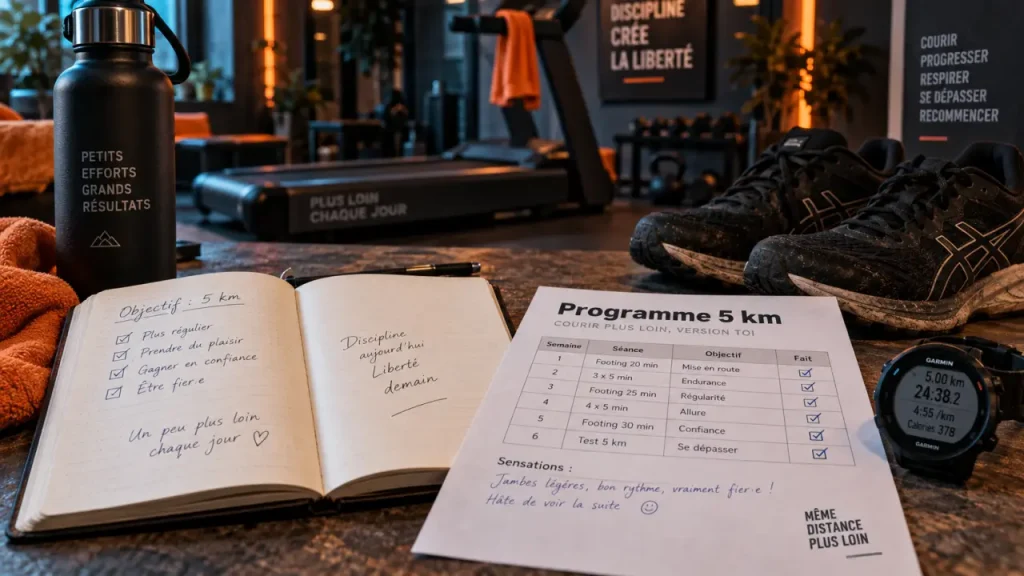 PETITS
EFFORTS
GRANDS
RÉSULTATS
DISCIPLINE
CRÉE
LA LIBERTÉ
COURIR
PROGRESSER
RESPIRER
SE DÉPASSER
RECOMMENCER
PLUS LOIN
CHAQUE JOUR
Objectif : 5 km
Plus régulier
Prendre du plaisir
Gagner en confiance
Être fier·e
Un peu plus loin
chaque jour ♡
Discipline
aujourd'hui
Liberté
demain
Programme 5 km
COURIR PLUS LOIN, VERSION TOI
Semaine Séance Objectif Fait
1 Footing 20 min Mise en route
2 3 x 5 min Endurance
3 Footing 25 min Régularité
4 4 x 5 min Allure
5 Footing 30 min Confiance
6 Test 5 km Se dépasser
Sensations :
Jambes légères, bon rythme, vraiment fier·e !
Hâte de voir la suite ☺
MÊME
DISTANCE
PLUS LOIN
GARMIN
5.00 km
24:38.2
4:55 /km
Calories 378
GARMIN